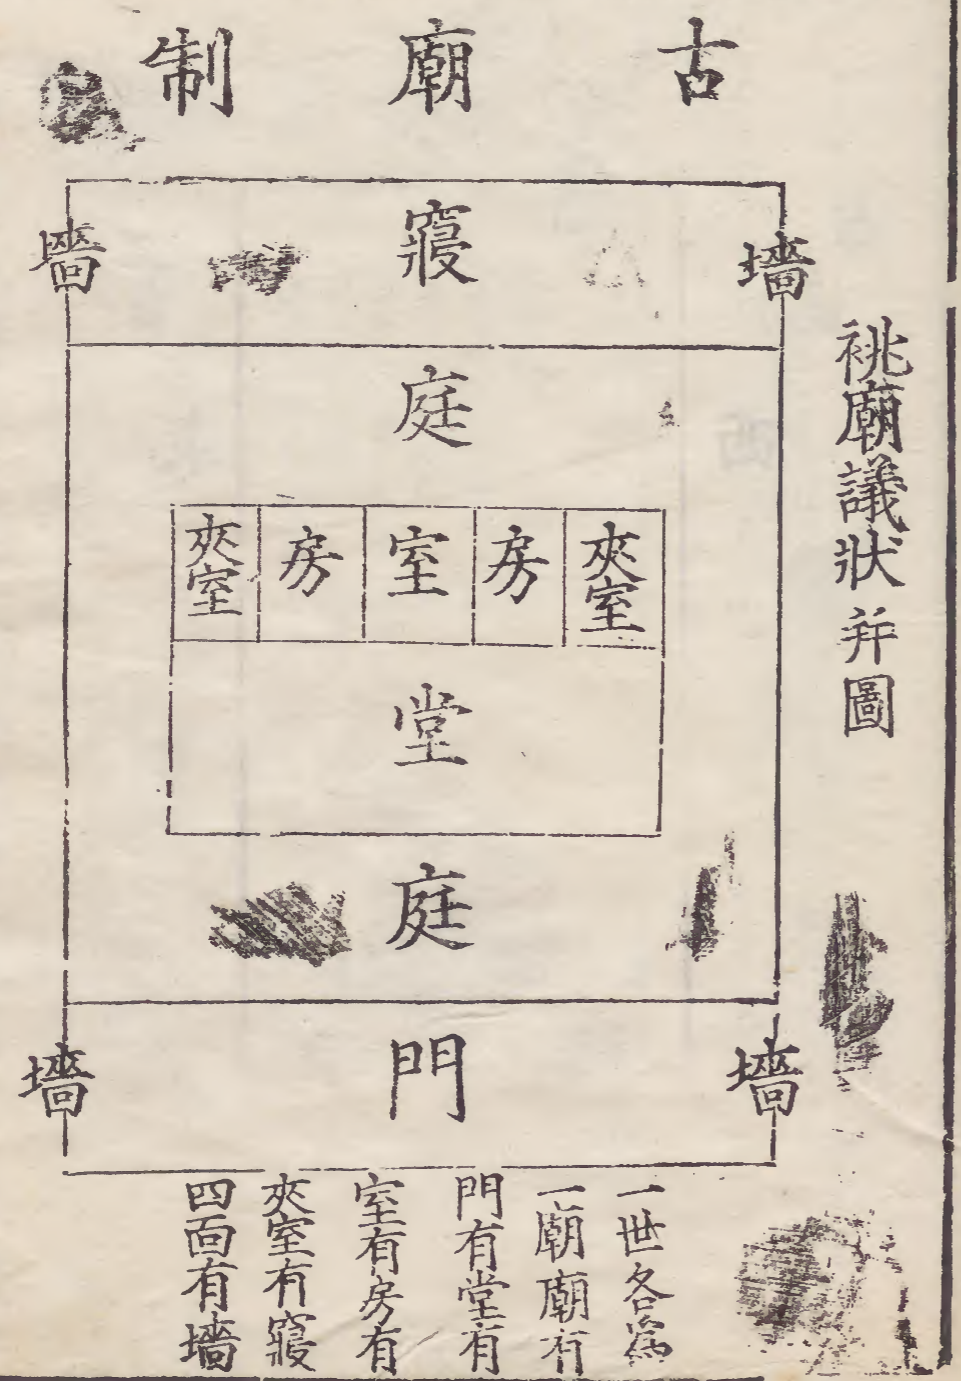 祧廟議狀并圖
古廟制
墻 寢 墻
庭
夾室 房 室 房 夾室
堂
庭
墻 門 墻
一世各為
一廟廟有
門有堂有
室有房有
夾室有寢
四面有墻